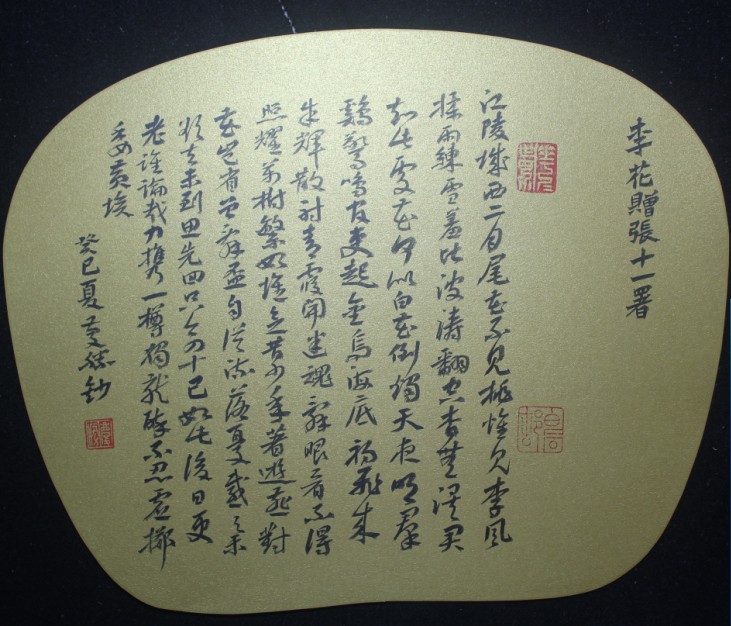 李花贈張十一署
江陵城西二月尾花不見桃惟見李風
揉雨練雪羞比波濤翻空杳無涘君
知此處花何似白花倒燭天夜明羣
鷄驚鳴官吏起金烏海底初飛來
朱輝散射青霞開迷魂亂眼看不得
照耀萬樹繁如堆念昔少年著遊燕對
花豈省曾辭盃自從流落憂感集
欲去未到思先回只今四十已如此後日更
老誰論哉力攜一樽獨就醉不忍虛擲
委黃埃
癸巳夏鈔